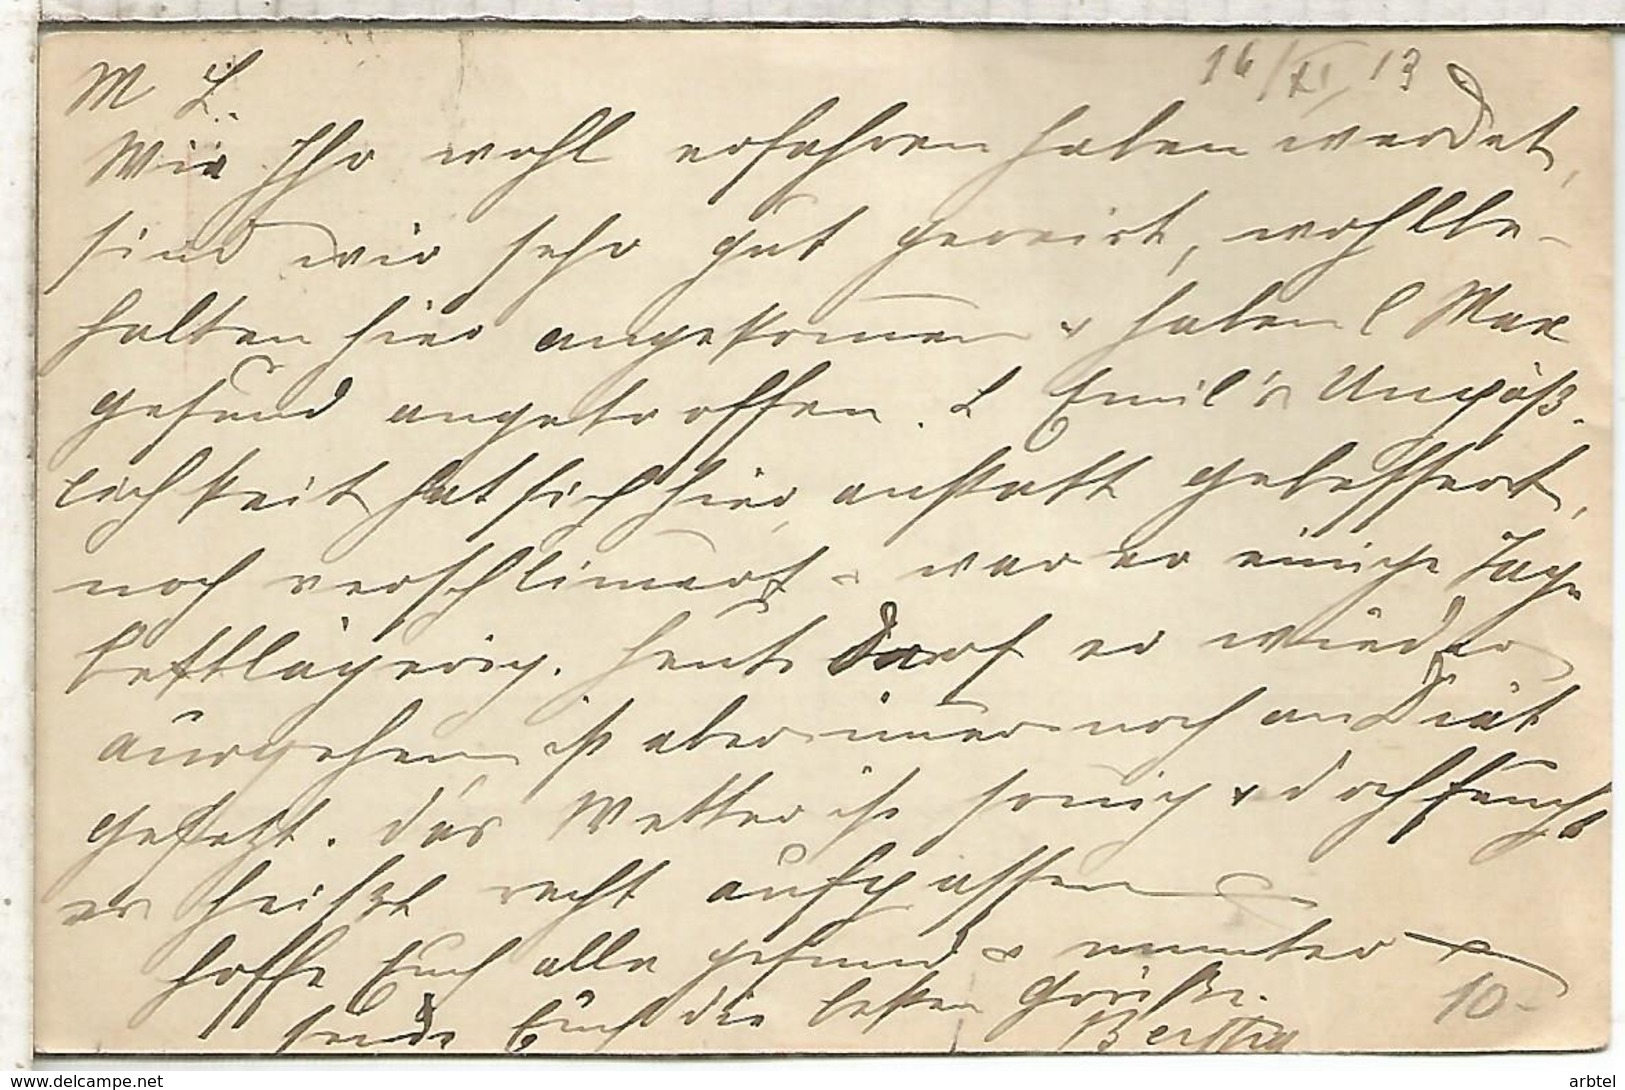 16/XI 13
M L.
Wie Ihr wohl erfahren haben werdet,
sind wir sehr gut gereist, wohlbe-
halten hier angekommen & haben l Max
gesund angetroffen. L Emil's Unpäß-
lichkeit hat sich hier, anstatt gebessert,
noch verschlimert & war er einige Tage
bettlägerig. Heute darf er wieder
ausgehen ist aber immer noch an Diät
gesetzt. Das Wetter ist sonnig & doch feucht
es heißt recht aufpassen
Hoffe Euch alle gesund & munter &
sende Euch die besten Grüße.
Bertha
10-
www.delcampe.net
arbtel